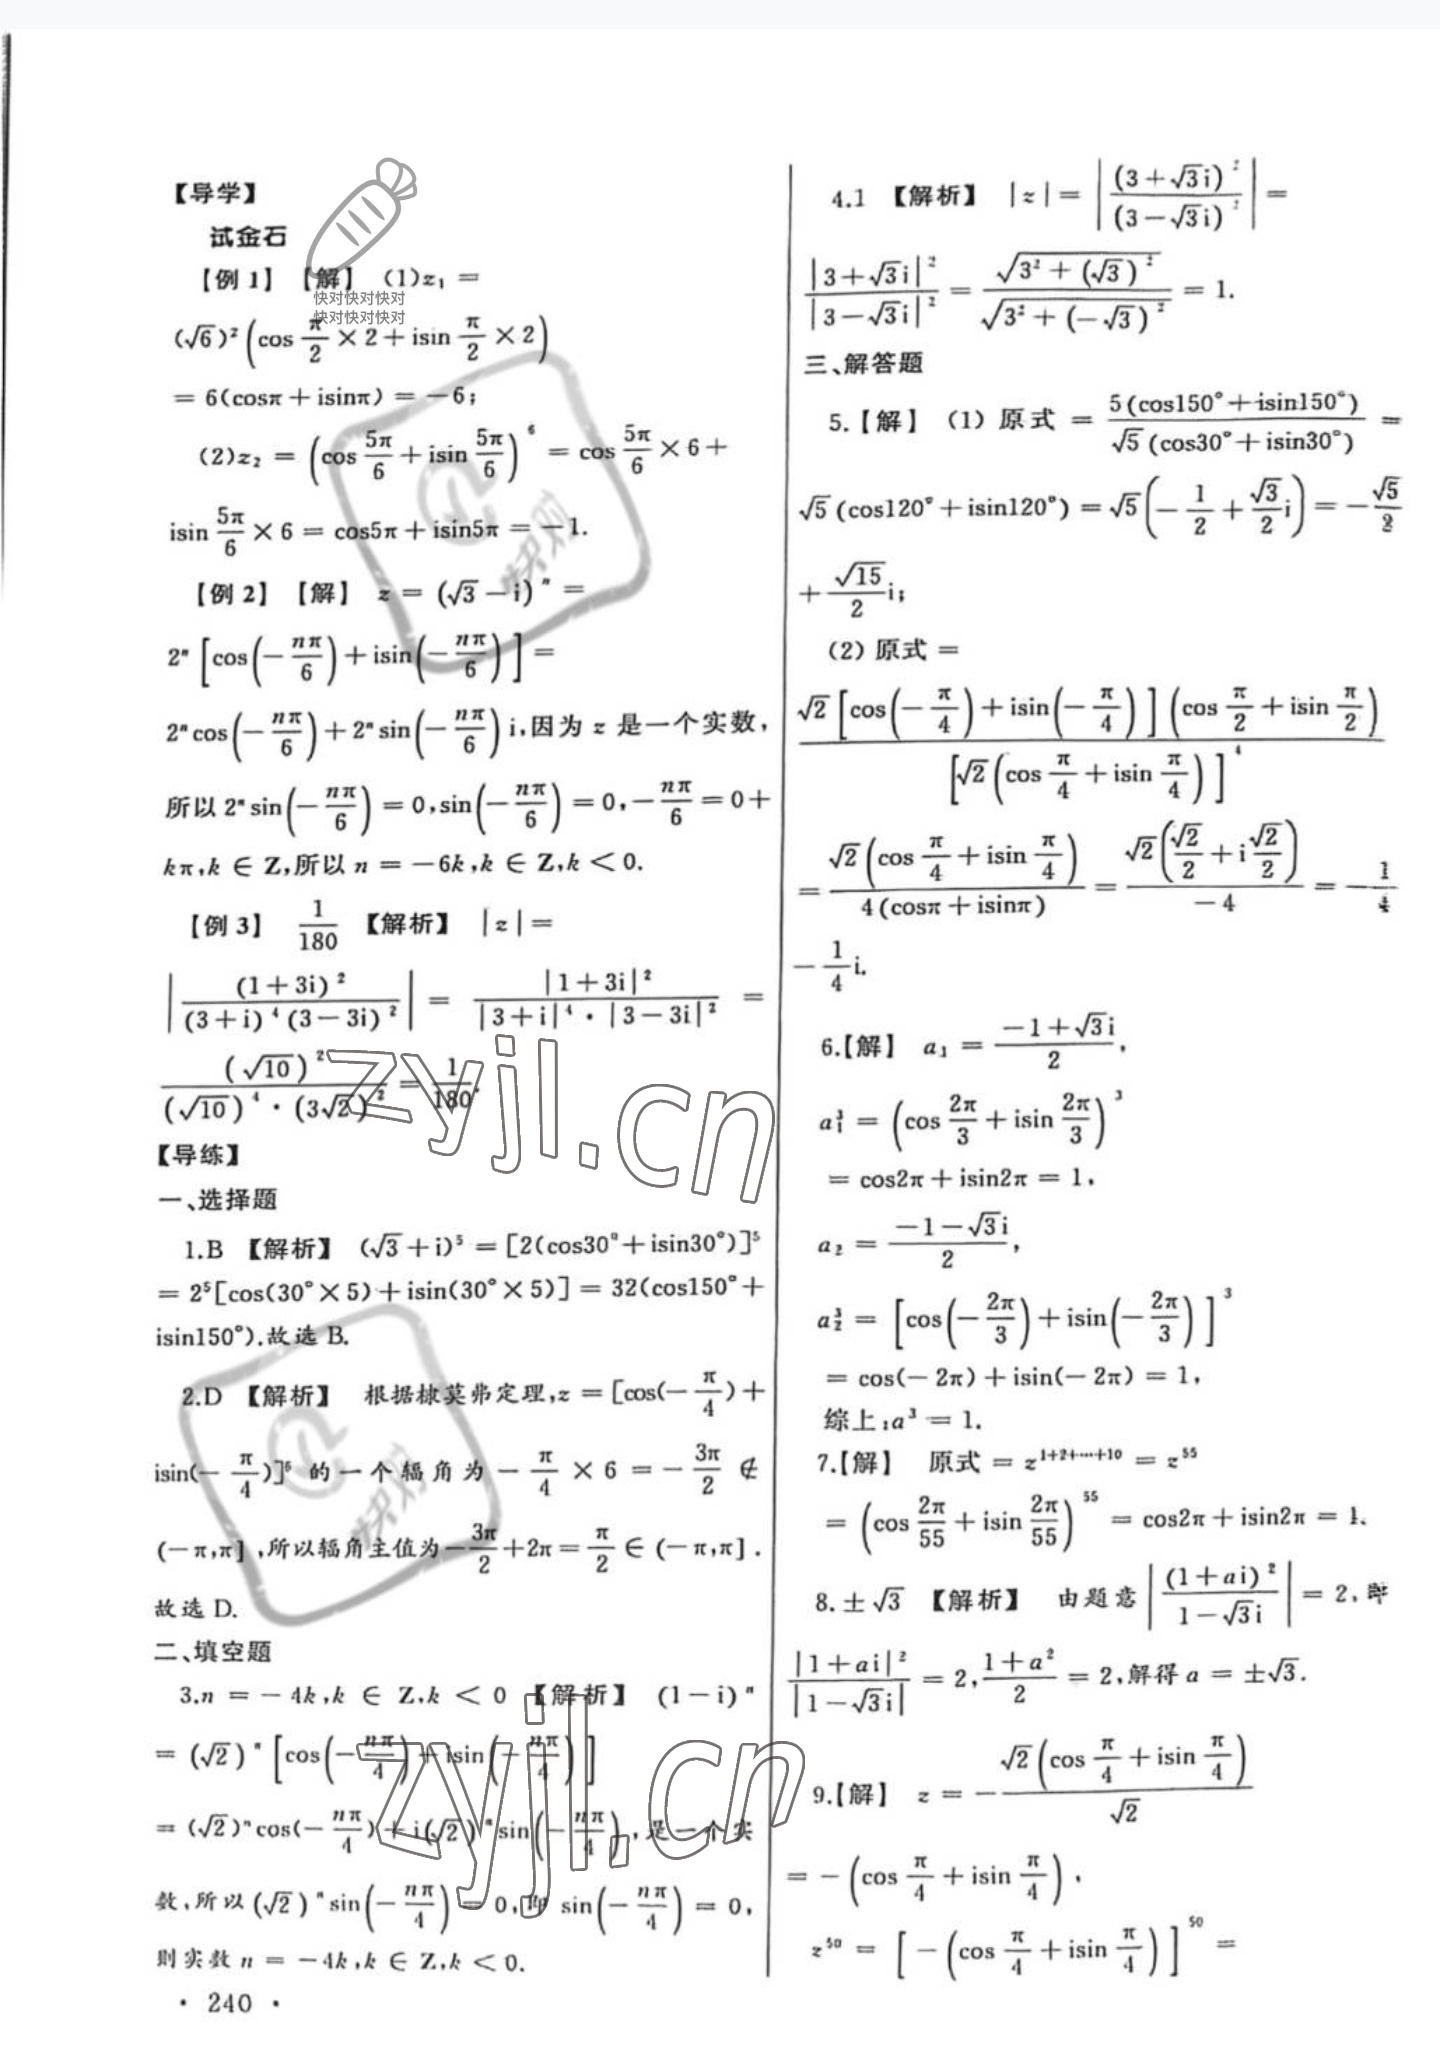 【导学】
试金石
【例1】 【解】 (1)z₁ =
快对快对快对
快对快对快对
(√6)²(cos π/2 × 2 + isin π/2 × 2)
= 6(cosπ + isinπ) = −6;
(2)z₂ = (cos 5π/6 + isin 5π/6)⁶ = cos 5π/6 × 6 +
isin 5π/6 × 6 = cos5π + isin5π = −1.
【例2】 【解】 z = (√3 − i)ⁿ =
2ⁿ[cos(−nπ/6) + isin(−nπ/6)] =
2ⁿcos(−nπ/6) + 2ⁿsin(−nπ/6)i,因为 z 是一个实数,
所以 2ⁿsin(−nπ/6) = 0,sin(−nπ/6) = 0,−nπ/6 = 0 +
kπ,k ∈ Z,所以 n = −6k,k ∈ Z,k < 0.
【例3】 1/180 【解析】 |z| =
|(1+3i)²/((3+i)⁴(3−3i)²)| = |1+3i|²/(|3+i|⁴·|3−3i|²) =
(√10)²/((√10)⁴·(3√2)²) = 1/180.
【导练】
一、选择题
1.B 【解析】 (√3+i)⁵ = [2(cos30°+isin30°)]⁵
= 2⁵[cos(30°×5)+isin(30°×5)] = 32(cos150°+
isin150°).故选 B.
2.D 【解析】 根据棣莫弗定理,z = [cos(−π/4)+
isin(−π/4)]⁶ 的一个辐角为 −π/4 × 6 = −3π/2 ∉
(−π,π],所以辐角主值为−3π/2+2π=π/2 ∈ (−π,π].
故选 D.
二、填空题
3.n = −4k,k ∈ Z,k < 0 【解析】 (1−i)ⁿ
= (√2)ⁿ[cos(−nπ/4)+isin(−nπ/4)]
= (√2)ⁿcos(−nπ/4)+i(√2)ⁿsin(−nπ/4),是一个实
数,所以(√2)ⁿsin(−nπ/4) = 0,即 sin(−nπ/4) = 0,
则实数 n = −4k,k ∈ Z,k < 0.
· 240 ·
4.1 【解析】 |z| = |(3+√3i)²/(3−√3i)²| =
|3+√3i|²/|3−√3i|² = √(3²+(√3)²)/√(3²+(−√3)²) = 1.
三、解答题
5.【解】 (1) 原式 = 5(cos150°+isin150°)/(√5(cos30°+isin30°)) =
√5(cos120°+isin120°) = √5(−1/2+√3/2i) = −√5/2
+√15/2i;
(2) 原式 =
√2[cos(−π/4)+isin(−π/4)](cos π/2+isin π/2)/[√2(cos π/4+isin π/4)]⁴
= √2(cos π/4+isin π/4)/(4(cosπ+isinπ)) = √2(√2/2+i√2/2)/(−4) = −1/4
−1/4i.
6.【解】 a₁ = (−1+√3i)/2,
a₁³ = (cos 2π/3+isin 2π/3)³
= cos2π+isin2π = 1,
a₂ = (−1−√3i)/2,
a₂³ = [cos(−2π/3)+isin(−2π/3)]³
= cos(−2π)+isin(−2π) = 1,
综上:a³ = 1.
7.【解】 原式 = z¹⁺²⁺⋯⁺¹⁰ = z⁵⁵
= (cos 2π/55+isin 2π/55)⁵⁵ = cos2π+isin2π = 1.
8.±√3 【解析】 由题意|(1+ai)²/(1−√3i)| = 2,即
|1+ai|²/|1−√3i| = 2,(1+a²)/2 = 2,解得 a = ±√3.
9.【解】 z = −√2(cos π/4+isin π/4)/√2
= −(cos π/4+isin π/4),
z⁵⁰ = [−(cos π/4+isin π/4)]⁵⁰ =
快对
zyjl.cn
快对
zyjl.cn